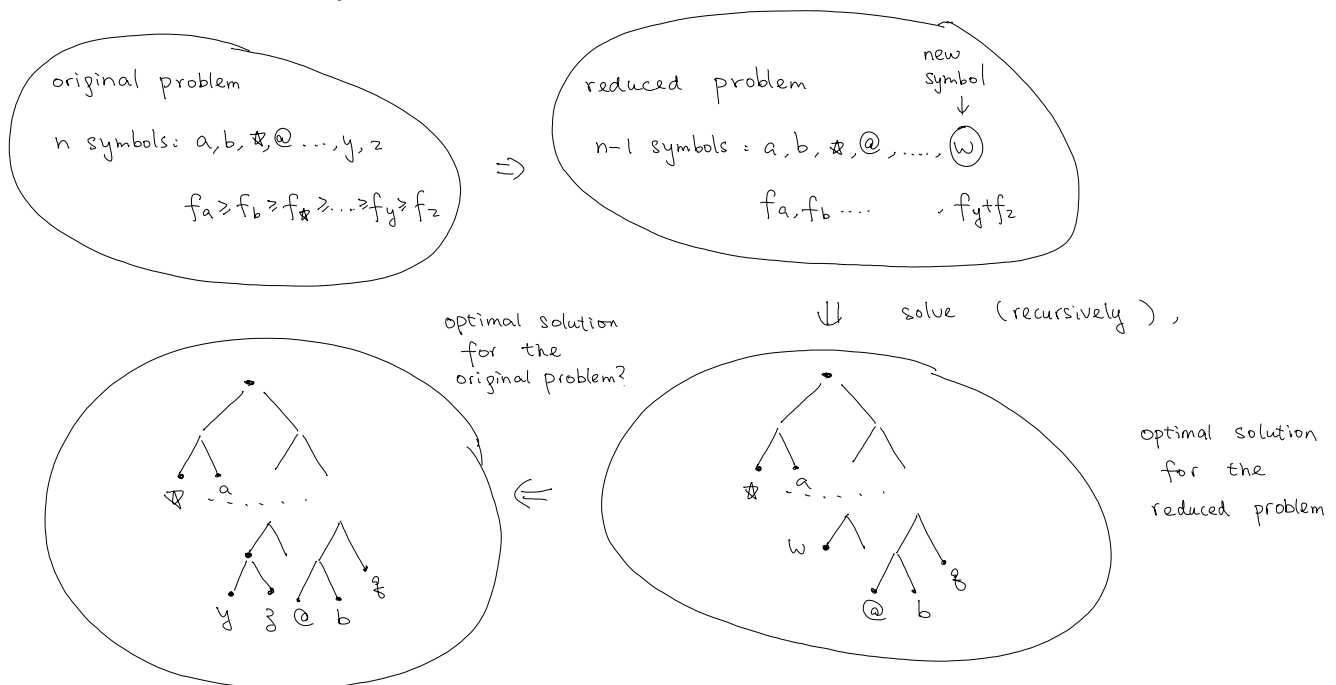 original problem
n symbols: a, b, ☆, @ ..., y, z
fa ≥ fb ≥ f☆ ≥ ... ≥ fy ≥ fz
⇒
reduced problem
new
symbol
↓
n-1 symbols : a, b, ☆, @, ...., w
fa, fb .... , fy+fz
⇓ solve (recursively),
optimal solution
for the
original problem?
☆ a
......
y z @ b q
⇐
☆ a
......
w
q
@ b
optimal solution
for the
reduced problem